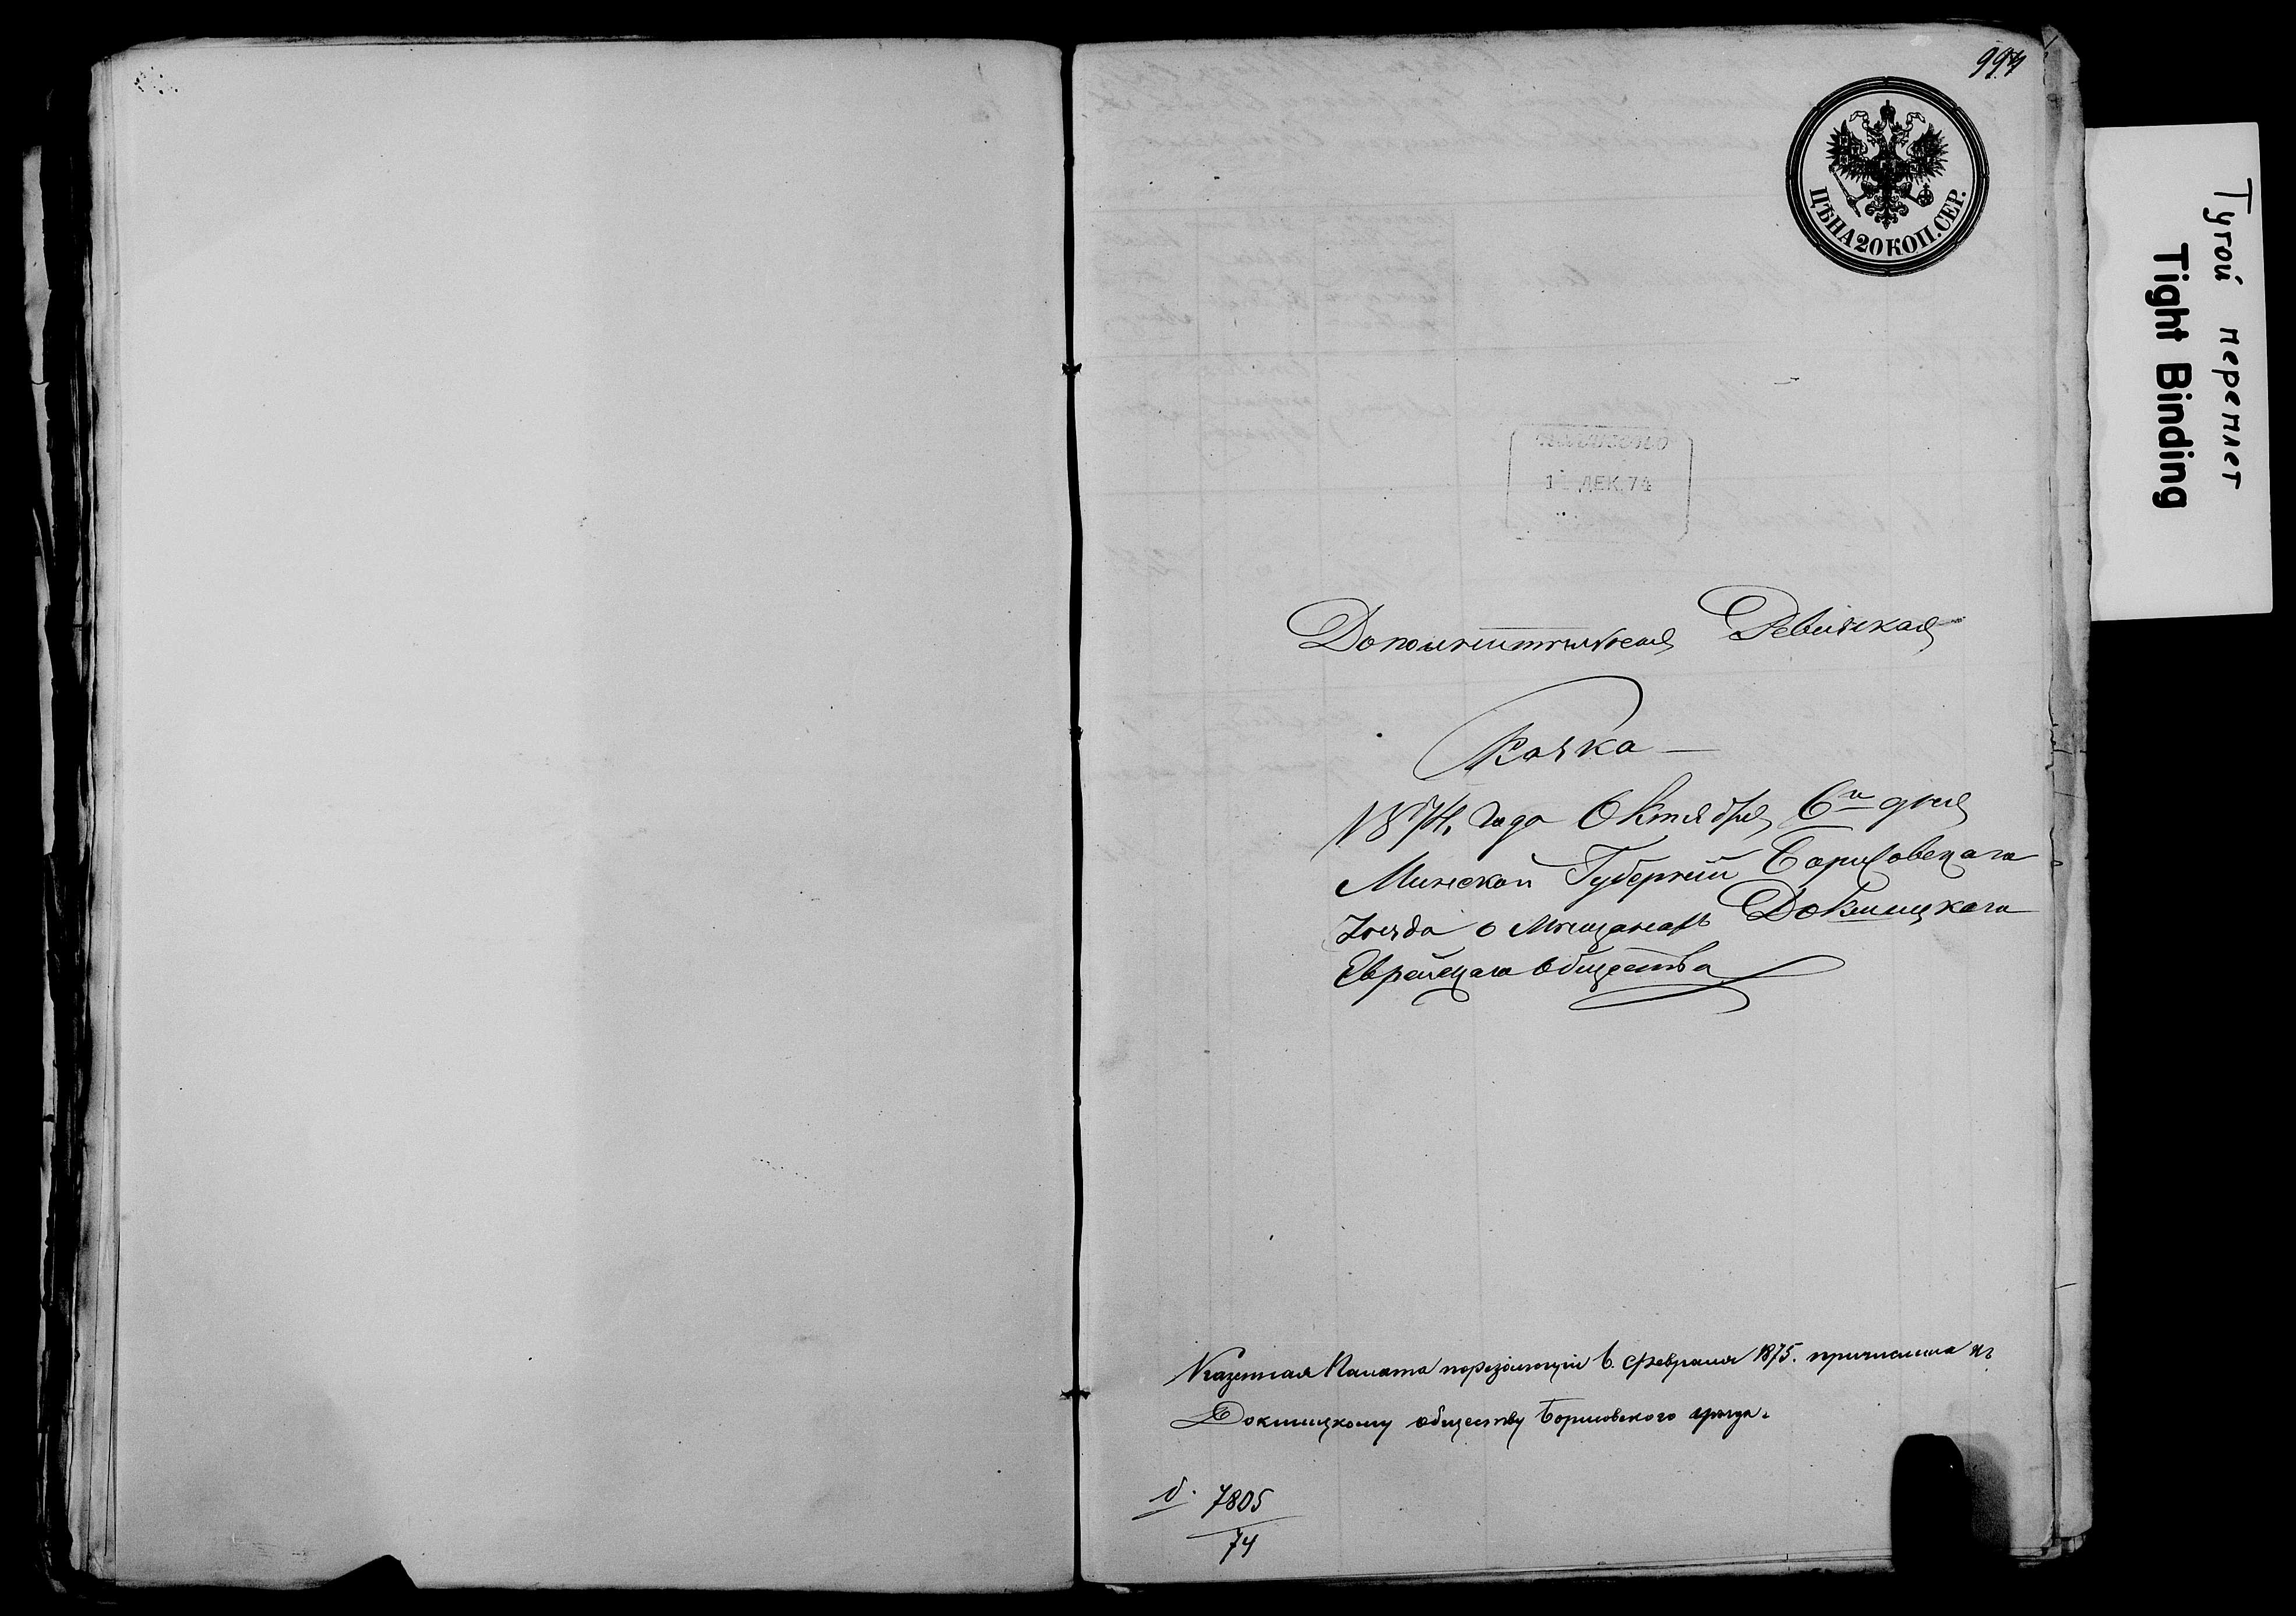 994
ЦѢНА 20 КОП. СЕР.
Тугой переплет
Tight Binding
ДЕК. 74
Дополнительная Ревизская
Сказка
1874 года Октября 6го дня
Минской Губерніи Борисовскаго
Уѣзда о Мѣщанахъ Докшицкаго
Еврейскаго Общества
Казенная Палата резолюціи 6. Февраля 1875. причислила къ
Докшицкому обществу Борисовского уѣзда.
7805
74